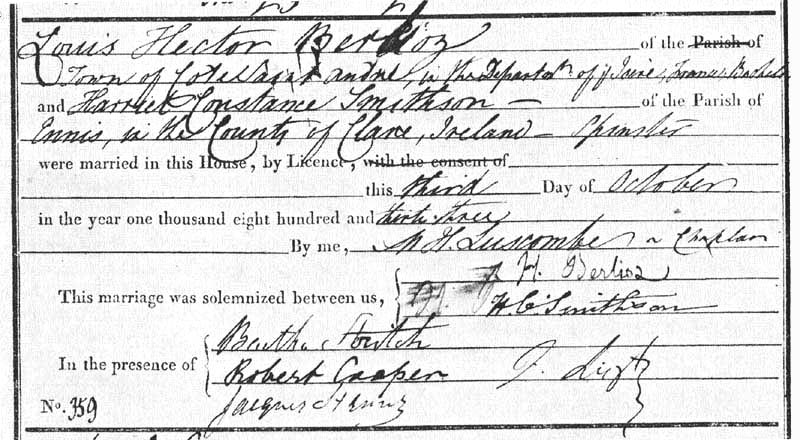 Louis Hector Berlioz of the Parish of
Town of Cote Saint andré, in the Departmt. of Isere, France Bachelor
and Harriet Constance Smithson — of the Parish of
Ennis, in the County of Clare, Ireland — Spinster
were married in this House, by Licence, with the consent of
this third Day of October
in the year one thousand eight hundred and thirty three
By me, M H. Luscombe Chaplain
This marriage was solemnized between us, { H. Berlioz
H C Smithson
In the presence of { Bertha Stritch
Robert Cooper F. Liszt }
Jacques Henry
No. 359